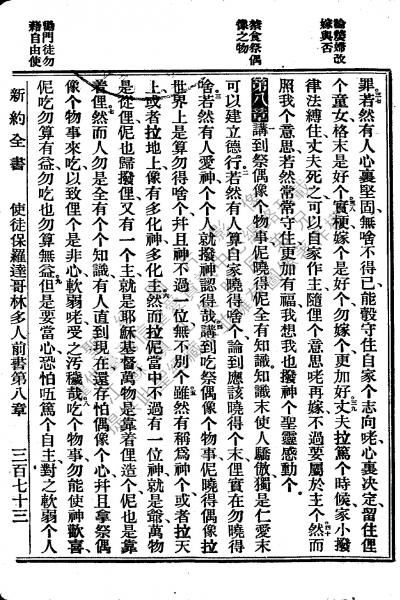 論嫠婦改
嫁與否
祭食祭偶
像之物
勸門徒勿
藉自由使
罪若然有人心裏堅固無啥不得已能彀守住自家个志向咾心裏決定留住俚
个童女格末是好个實梗嫁个是好个勿嫁个更加好丈夫拉篤个時候家小撥
律法縛住丈夫死之可以自家作主隨俚个意思咾再嫁不過要屬於主个然而
照我个意思若然常常守住更加有福我想我也撥神个聖靈感動个
第八章講到祭偶像个物事伲曉得伲全有知識知識末使人驕傲獨是仁愛末
可以建立德行若然有人算自家曉得啥个論到應該曉得个末俚實在勿曉得
啥若然有人愛神个个人就撥神認得哉講到吃祭偶像个物事伲曉得偶像拉
世界上是算勿得啥个幷且神不過一位無不別个雖然有稱爲神个或者拉天
上或者拉地上像有多化神多化主然而拉伲當中不過有一位神就是爺萬物
是從俚伲也歸撥俚又有一个主就是耶穌基督萬物是靠着俚造个伲也是靠
着俚然而人勿是全有个个知識有人直到現在還存怕偶像个心幷且拿祭偶
像个物事來吃以致俚个是非心軟弱咾受之汚穢哉吃个物事勿能使神歡喜
伲吃勿算有益勿吃也勿算無益但是要當心恐怕唔篤个自主對之軟弱个人
新約全書 使徒保羅達哥林多人前書第八章 三百七十三